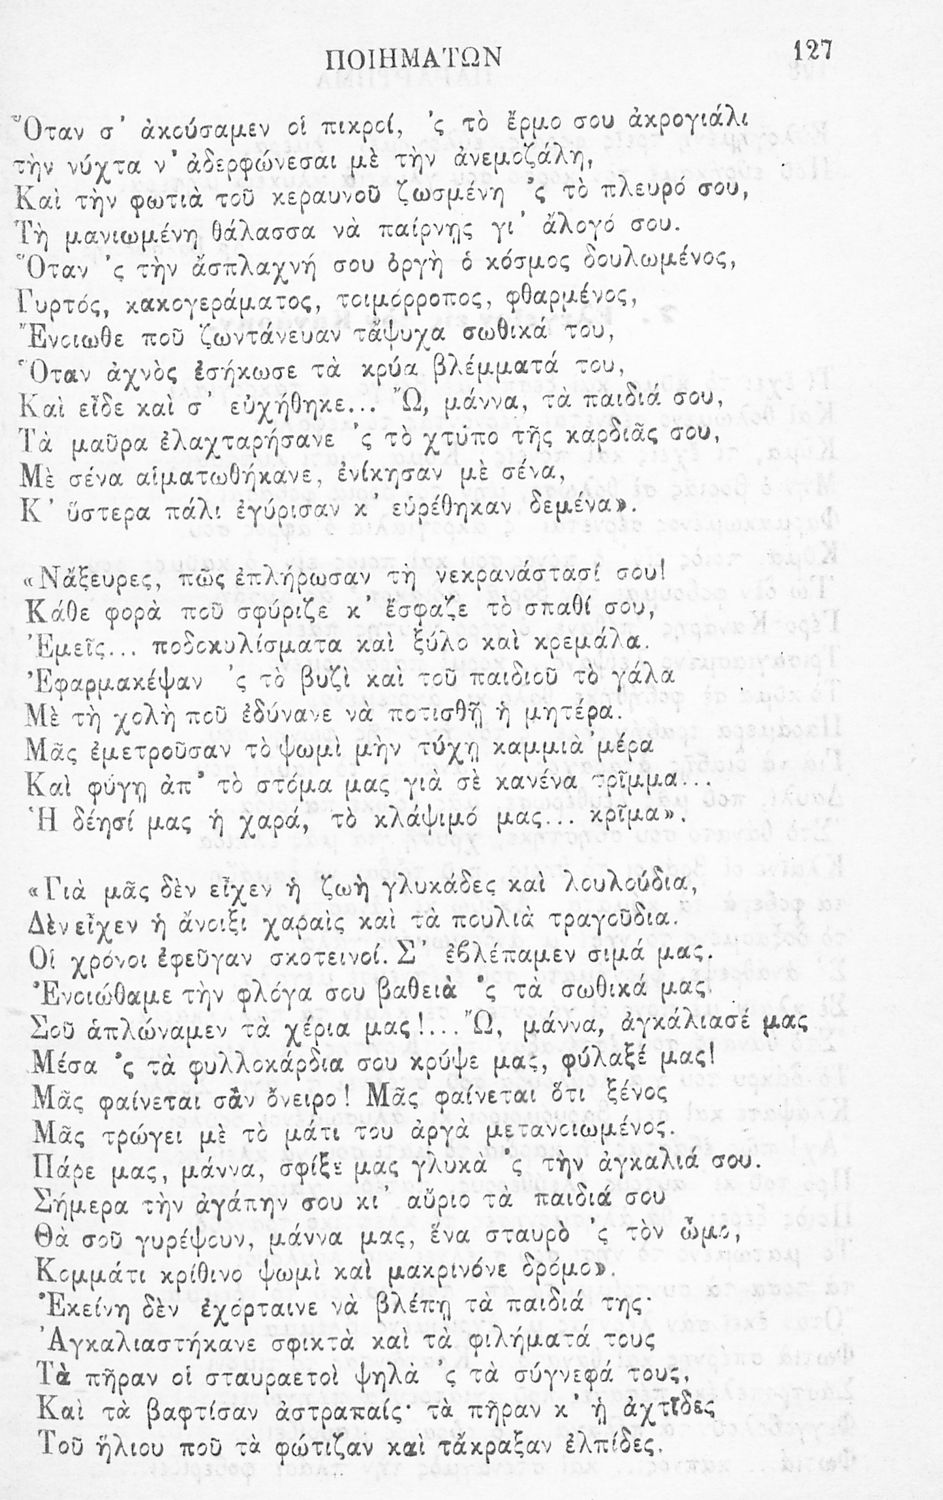 ΠΟΙΗΜΑΤΩΝ 127
Ὅταν σ' ἀκούσαμεν οἱ πικροί, 'ς τὸ ἔρμο σου ἀκρογιάλι
τὴν νύχτα ν' ἀδερφώνεσαι μὲ τὴν ἀνεμοζάλη,
Καὶ τὴν φωτιὰ τοῦ κεραυνοῦ ζωσμένη 'ς τὸ πλευρό σου,
Τὴ μανιωμένη θάλασσα νὰ παίρνῃς γι' ἄλογό σου.
Ὅταν 'ς τὴν ἄσπλαχνή σου ὀργὴ ὁ κόσμος δουλωμένος,
Γυρτός, κακογεράματος, τοιμόρροπος, φθαρμένος,
Ἔνοιωθε ποῦ ζωντάνευαν τἄψυχα σωθικά του,
Ὅταν ἀχνὸς ἐσήκωσε τὰ κρύα βλέμματά του,
Καὶ εἶδε καὶ σ' εὐχήθηκε... Ὤ, μάννα, τὰ παιδιά σου,
Τὰ μαῦρα ἐλαχταρήσανε 'ς τὸ χτύπο τῆς καρδιᾶς σου,
Μὲ σένα αἱματωθήκανε, ἐνίκησαν μὲ σένα,
Κ' ὕστερα πάλι ἐγύρισαν κ' εὑρέθηκαν δεμένα».
«Νἄξευρες, πῶς ἐπλήρωσαν τὴ νεκρανάστασί σου!
Κάθε φορὰ ποῦ σφύριζε κ' ἔσφαζε τὸ σπαθί σου,
Ἐμεῖς... ποδοκυλίσματα καὶ ξύλο καὶ κρεμάλα.
Ἐφαρμακέψαν 'ς τὸ βυζὶ καὶ τοῦ παιδιοῦ τὸ γάλα
Μὲ τὴ χολὴ ποῦ ἐδύνανε νὰ ποτισθῇ ἡ μητέρα.
Μᾶς ἐμετροῦσαν τὸ ψωμὶ μὴν τύχῃ καμμιὰ 'μέρα
Καὶ φύγῃ ἀπ' τὸ στόμα μας γιὰ σὲ κανένα τρῖμμα...
Ἡ δέησί μας ἡ χαρά, τὸ κλάψιμό μας... κρῖμα».
«Γιὰ μᾶς δὲν εἶχεν ἡ ζωὴ γλυκάδες καὶ λουλούδια,
Δὲν εἶχεν ἡ ἄνοιξι χαραὶς καὶ τὰ πουλιὰ τραγοῦδια.
Οἱ χρόνοι ἐφεῦγαν σκοτεινοί. Σ' ἐβλέπαμεν σιμά μας.
Ἐνοιώθαμε τὴν φλόγα σου βαθειὰ 'ς τὰ σωθικά μας.
Σοῦ ἁπλώναμεν τὰ χέρια μας!... Ὤ, μάννα, ἀγκάλιασέ μας
Μέσα 'ς τὰ φυλλοκάρδια σου κρύψε μας, φύλαξέ μας!
Μᾶς φαίνεται σὰν ὄνειρο! Μᾶς φαίνεται ὅτι ξένος
Μᾶς τρώγει μὲ τὸ μάτι του ἀργὰ μετανοιωμένος.
Πάρε μας, μάννα, σφίξε μας γλυκὰ 'ς τὴν ἀγκαλιά σου.
Σήμερα τὴν ἀγάπην σου κι' αὔριο τὰ παιδιά σου
Θὰ σοῦ γυρέψουν, μάννα μας, ἕνα σταυρὸ 'ς τὸν ὦμο,
Κομμάτι κρίθινο ψωμὶ καὶ μακρινόνε δρόμο».
Ἐκείνη δὲν ἐχόρταινε νὰ βλέπῃ τὰ παιδιά της·
Ἀγκαλιαστήκανε σφικτὰ καὶ τὰ φιλήματά τους
Τὰ πῆραν οἱ σταυραετοὶ ψηλὰ 'ς τὰ σύγνεφά τους,
Καὶ τὰ βαφτίσαν ἀστραπαίς· τὰ πῆραν κ' ἡ ἀχτῖδες
Τοῦ ἥλιου ποῦ τὰ φώτιζαν καὶ τἄκραξαν ἐλπίδες.